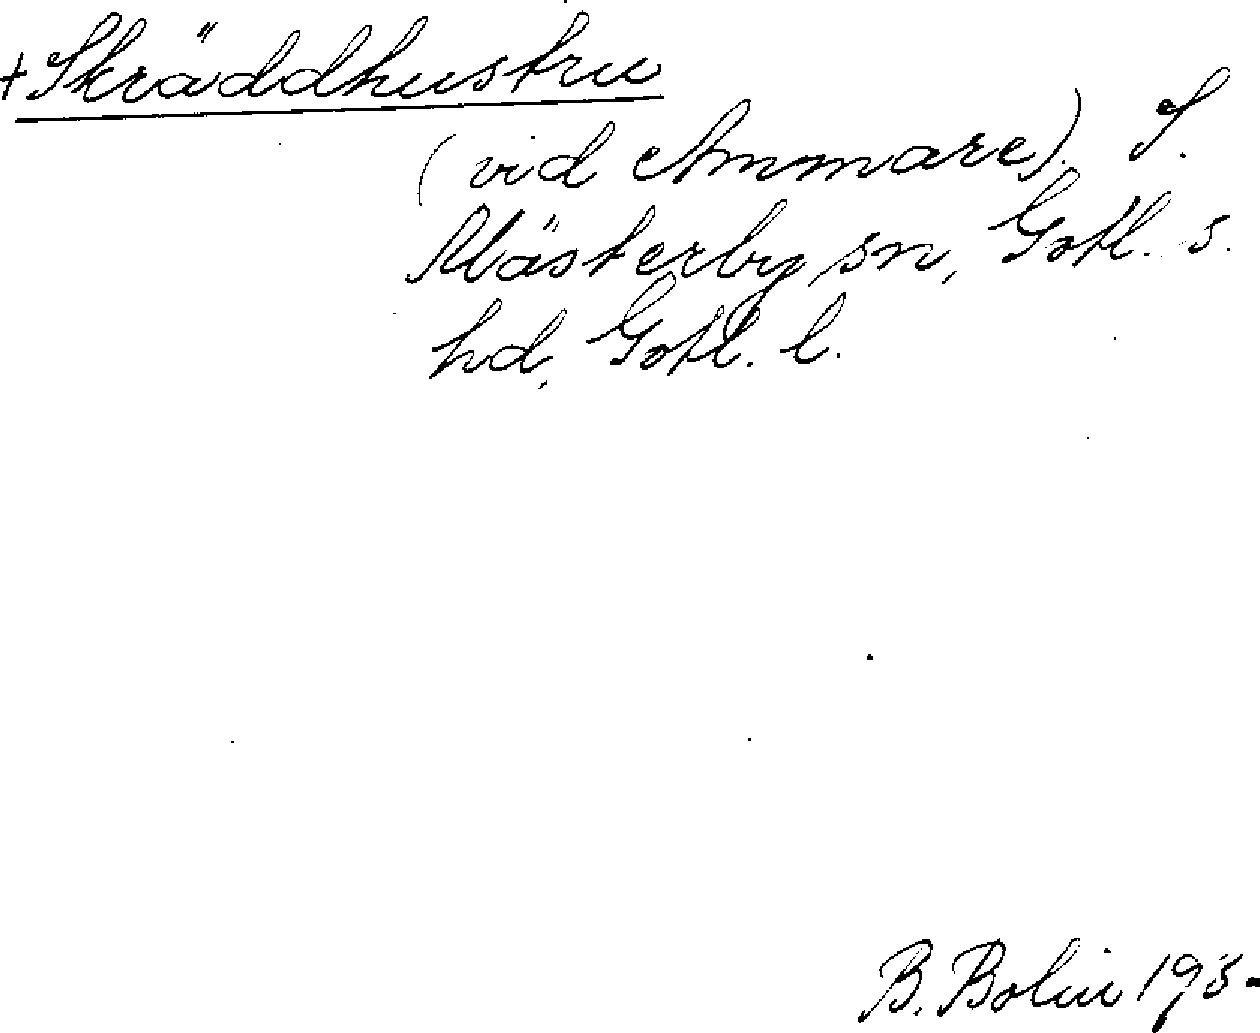 +Skräddhustru
(vid Ammare). S.
Mästerby sn, Gotl. s.
hd, Gotl. l.
B. Bolin 193-